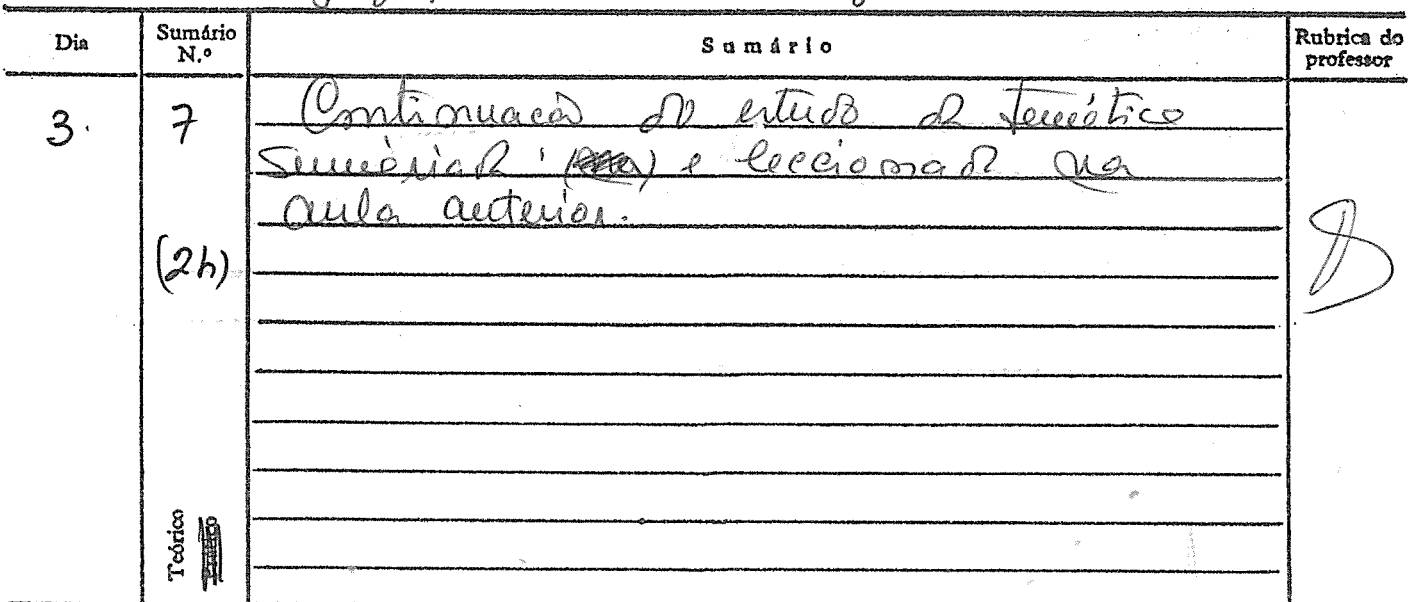 Dia Sumário N.º Sumário Rubrica do professor
3. 7 Continuação do estudo da temática
sumariada e leccionada na
aula anterior.
(2h)
Teórico